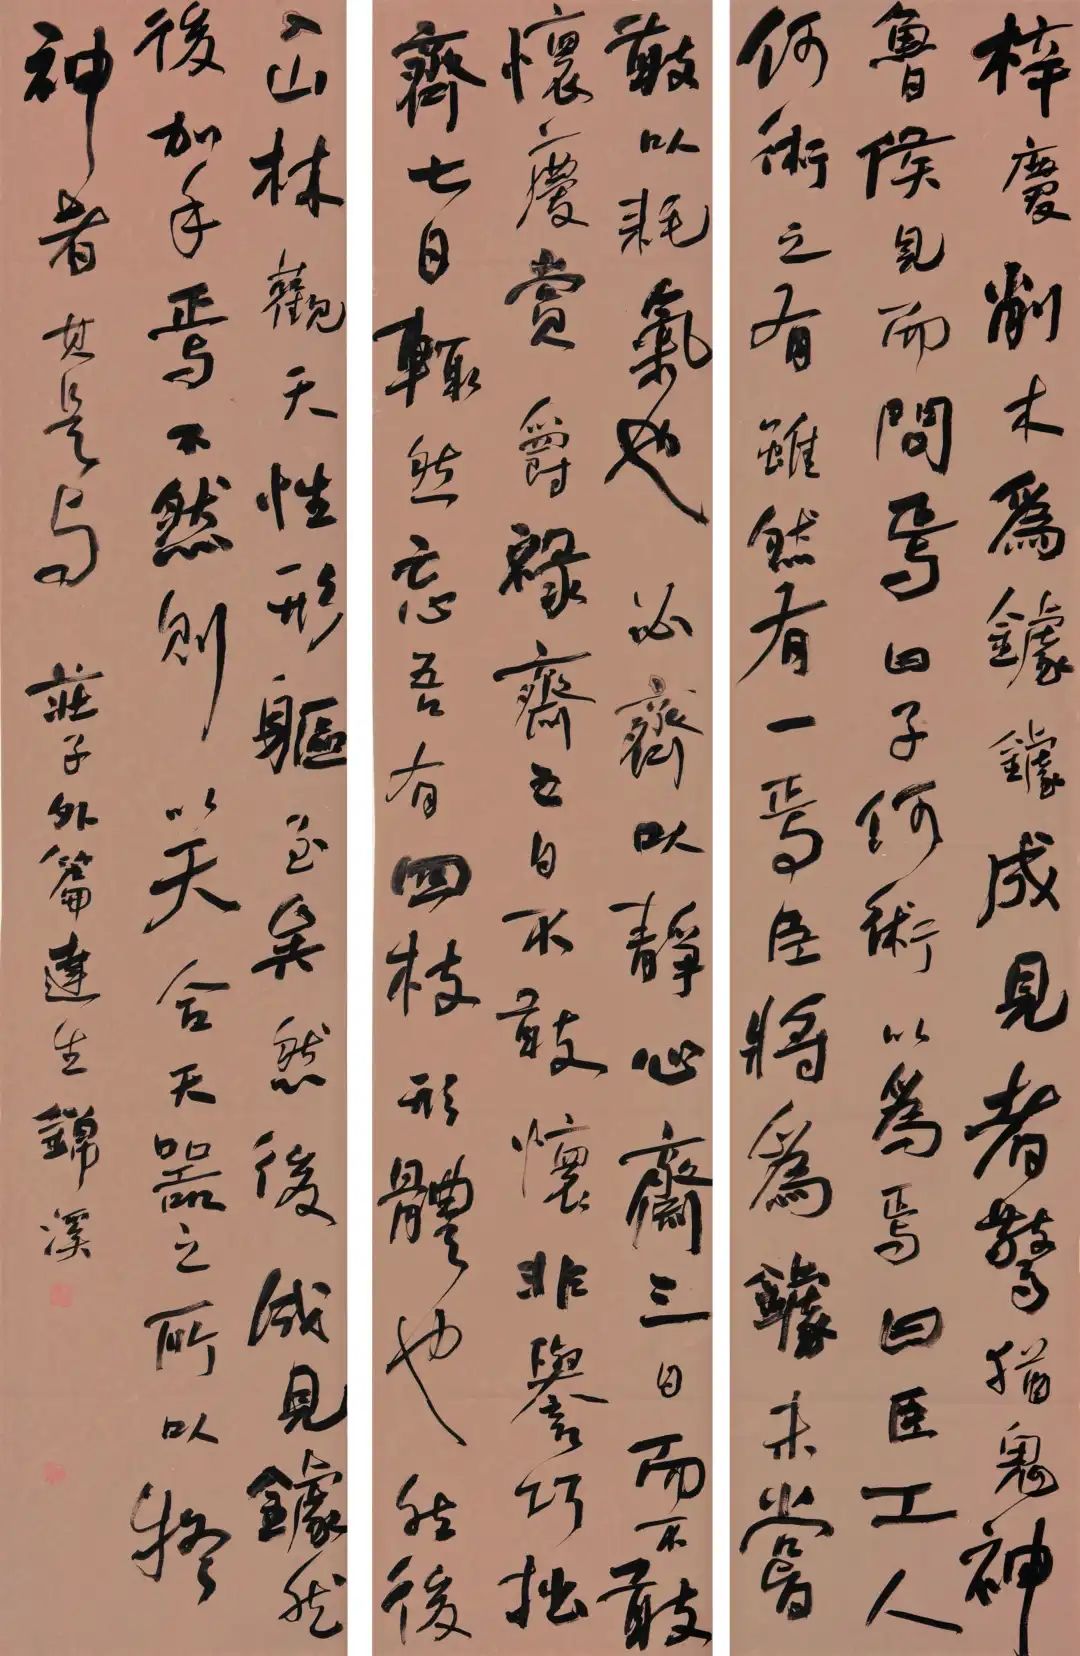 梓慶削木為鐻鐻成見者驚猶鬼神
魯侯見而問焉曰子何術以為焉曰臣工人
何術之有雖然有一焉臣將為鐻未嘗
敢以耗氣也必齊以靜心齋三日而不敢
懷慶賞爵祿齋五日不敢懷非譽巧拙
齊七日輒然忘吾有四枝形體也然後
入山林觀天性形軀至矣然後成見鐻然
後加手焉不然則以天合天器之所以疑
神者其是與 莊子外篇達生 錦溪